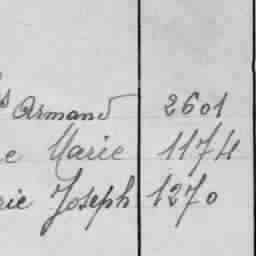 s Armand 2601
e Marie 1174
rie Joseph 1270